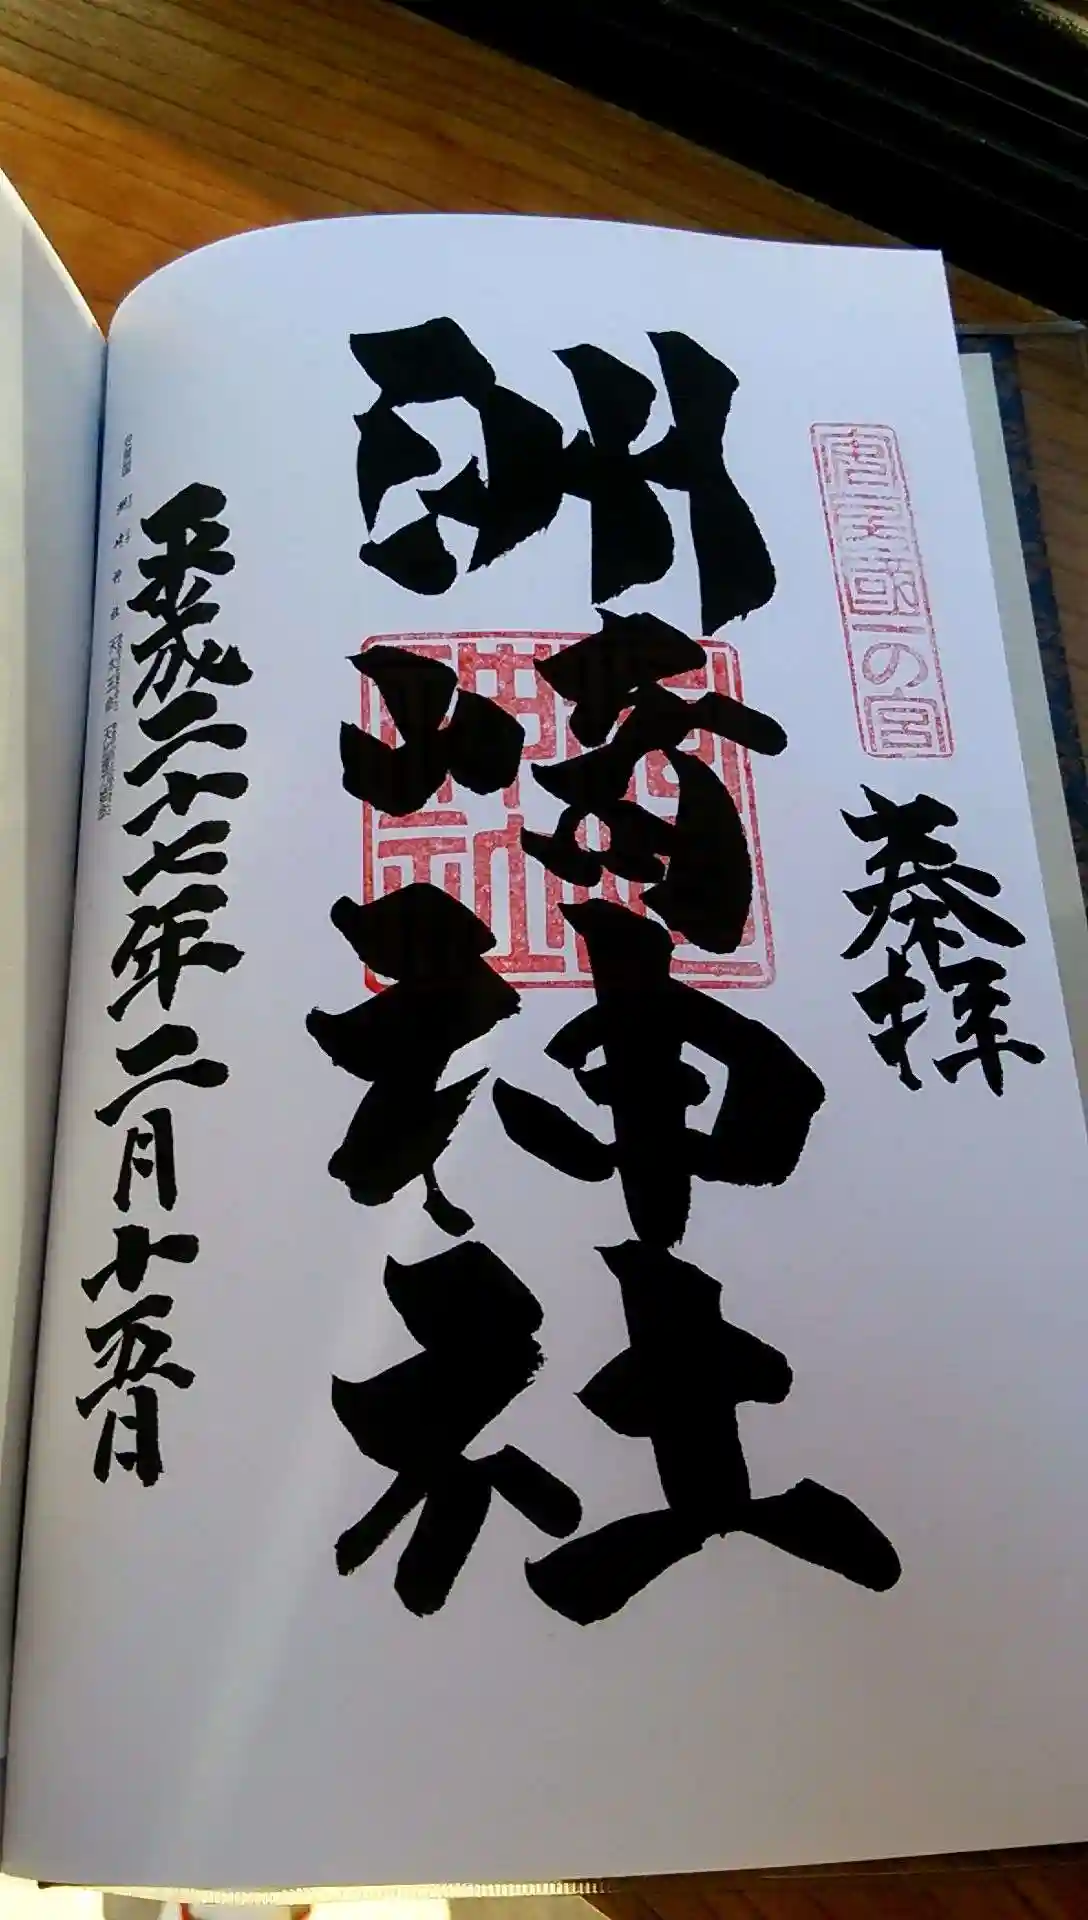 安房國一の宮
奉拝
洲崎神社
平成二十七年二月十五日